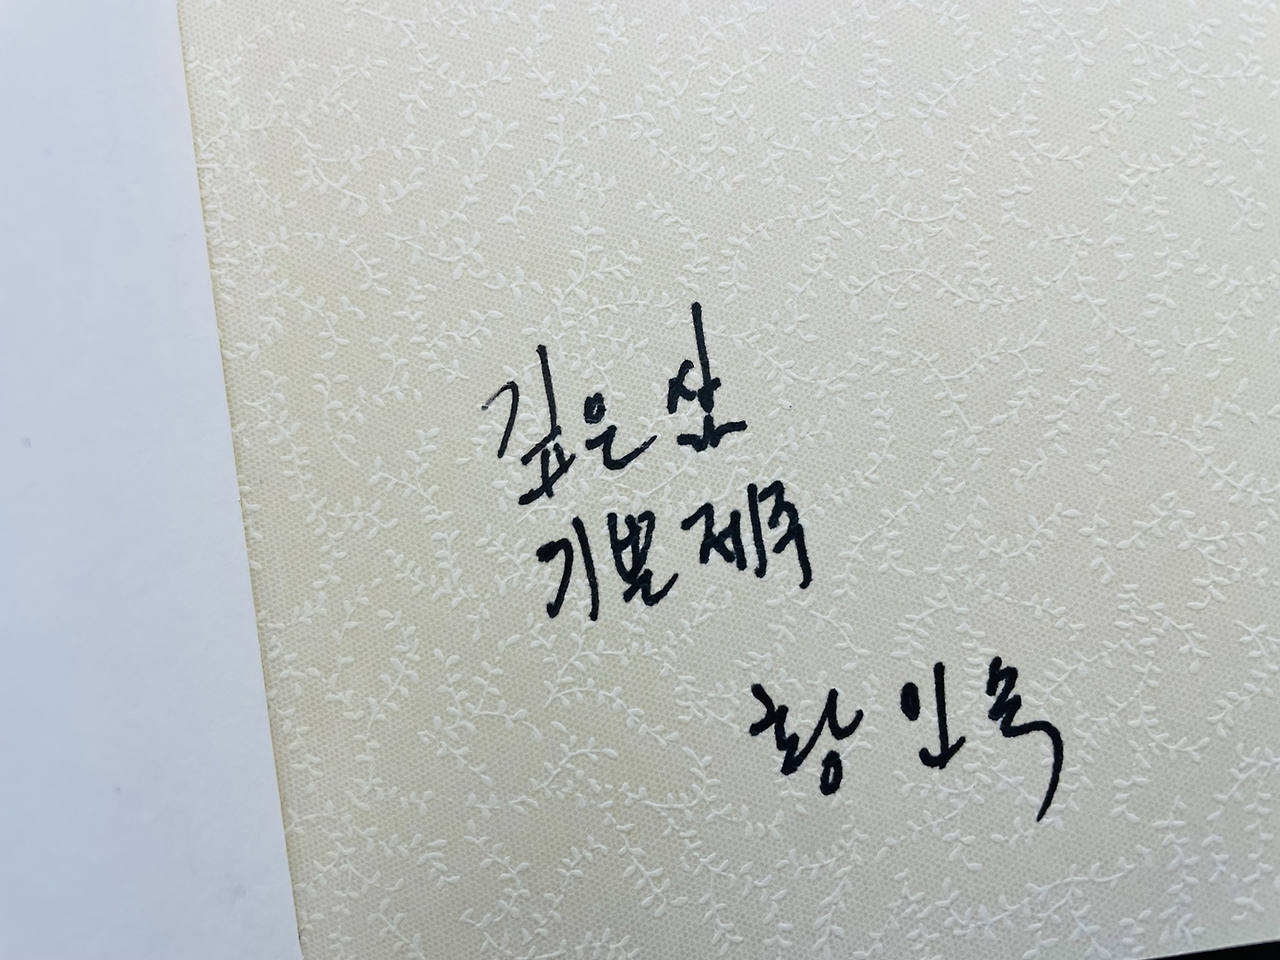 깊은 산
기본 제주
황인옥